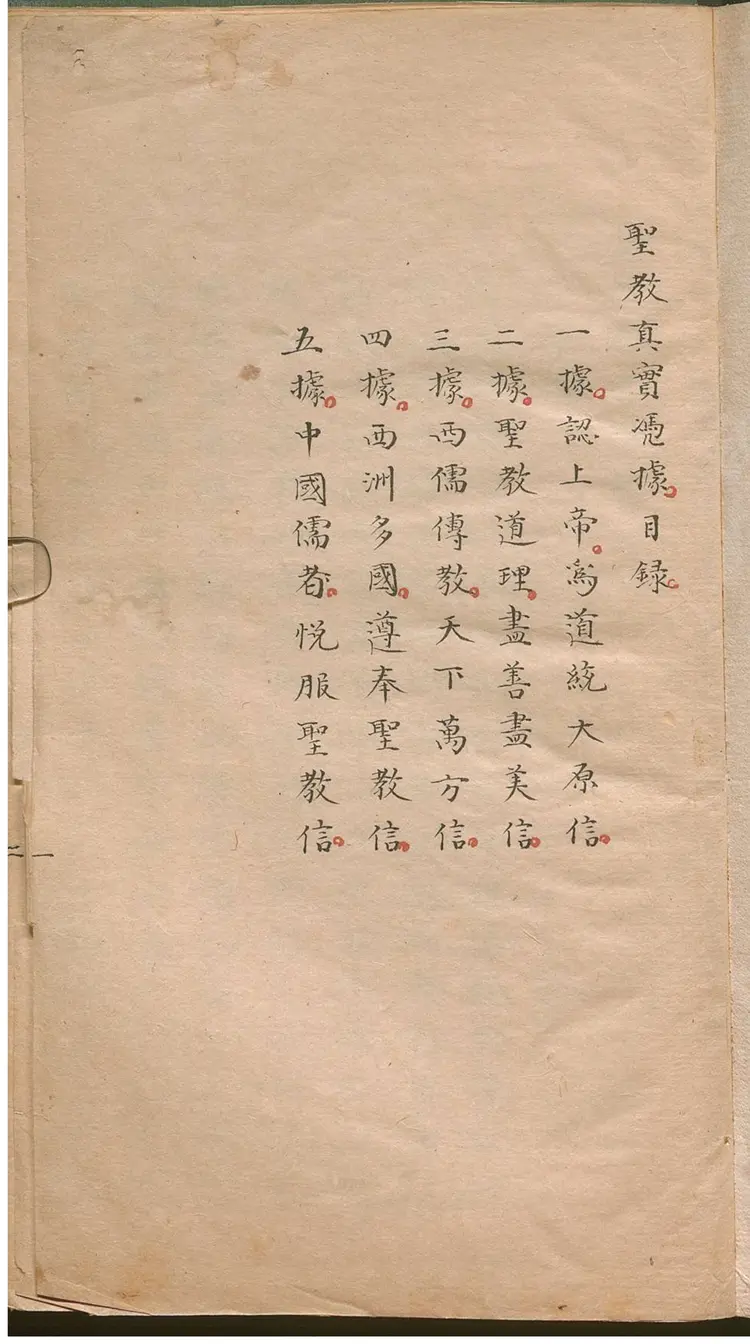 聖教真實憑據。目錄。
一據。認上帝。爲道統大原信。
二據。聖教道理。盡善盡美信。
三據。西儒傳教。天下萬方信。
四據。西洲多國。遵奉聖教信。
五據。中國儒者。悅服聖教信。